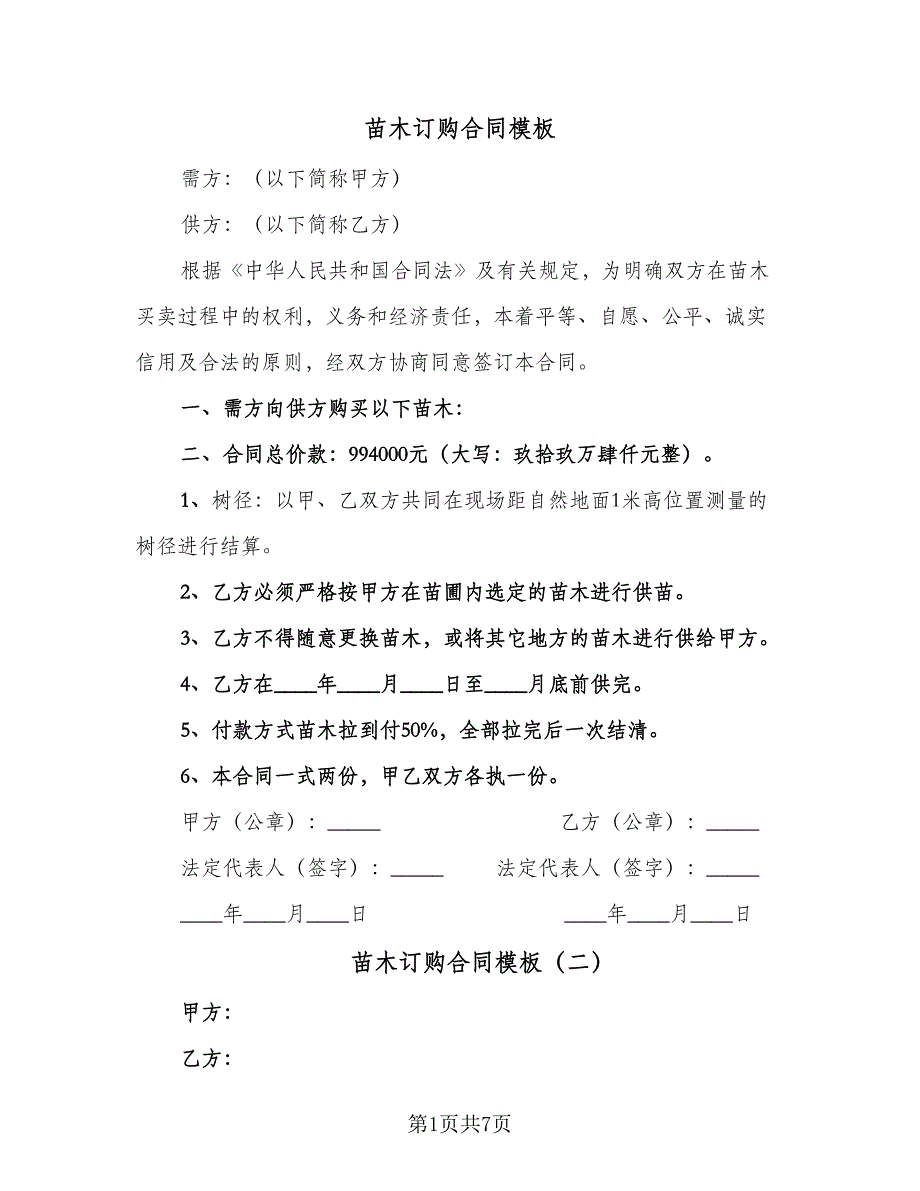 苗木订购合同模板
需方：（以下简称甲方）
供方：（以下简称乙方）
根据《中华人民共和国合同法》及有关规定，为明确双方在苗木
买卖过程中的权利，义务和经济责任，本着平等、自愿、公平、诚实
信用及合法的原则，经双方协商同意签订本合同。
一、需方向供方购买以下苗木：
二、合同总价款：994000元（大写：玖拾玖万肆仟元整）。
1、树径：以甲、乙双方共同在现场距自然地面1米高位置测量的
树径进行结算。
2、乙方必须严格按甲方在苗圃内选定的苗木进行供苗。
3、乙方不得随意更换苗木，或将其它地方的苗木进行供给甲方。
4、乙方在____年____月____日至____月底前供完。
5、付款方式苗木拉到付50%，全部拉完后一次结清。
6、本合同一式两份，甲乙双方各执一份。
甲方（公章）：_____ 乙方（公章）：_____
法定代表人（签字）：_____ 法定代表人（签字）：_____
____年____月____日 ____年____月____日
苗木订购合同模板（二）
甲方：
乙方：
第1页共7页